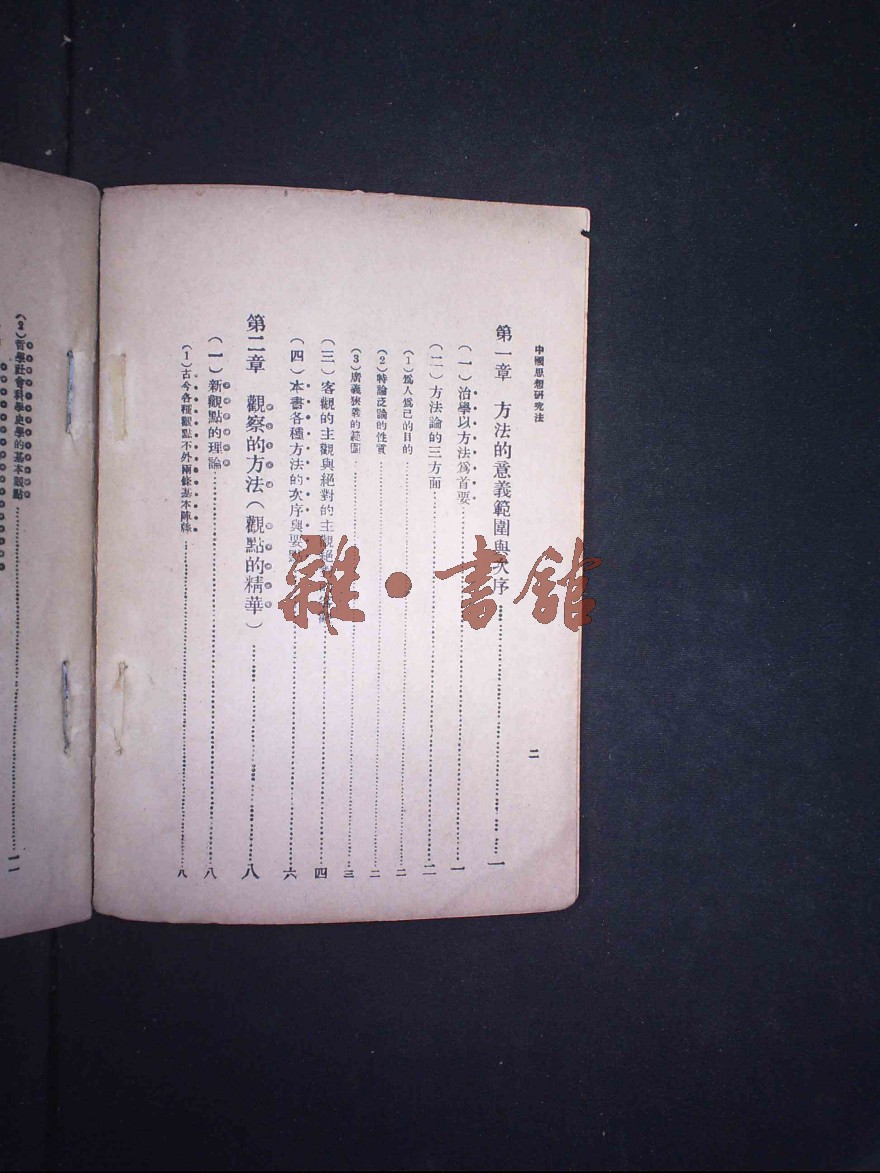 中國思想研究法
二
第一章 方法的意義範圍與次序 一
(一)治學以方法爲首要 一
(二)方法論的三方面 二
(1)爲人爲己的目的 二
(2)特論泛論的性質 二
(3)廣義狹義的範圍 三
(三)客觀的主觀與絕對的主觀絕 四
(四)本書各種方法的次序與要點 六
第二章 觀察的方法(觀點的精華) 八
(一)新觀點的理論 八
(1)古今各種觀點不外兩條基本陣線 八
(2)哲學社會科學史學的基本觀點 一一
雜·書館